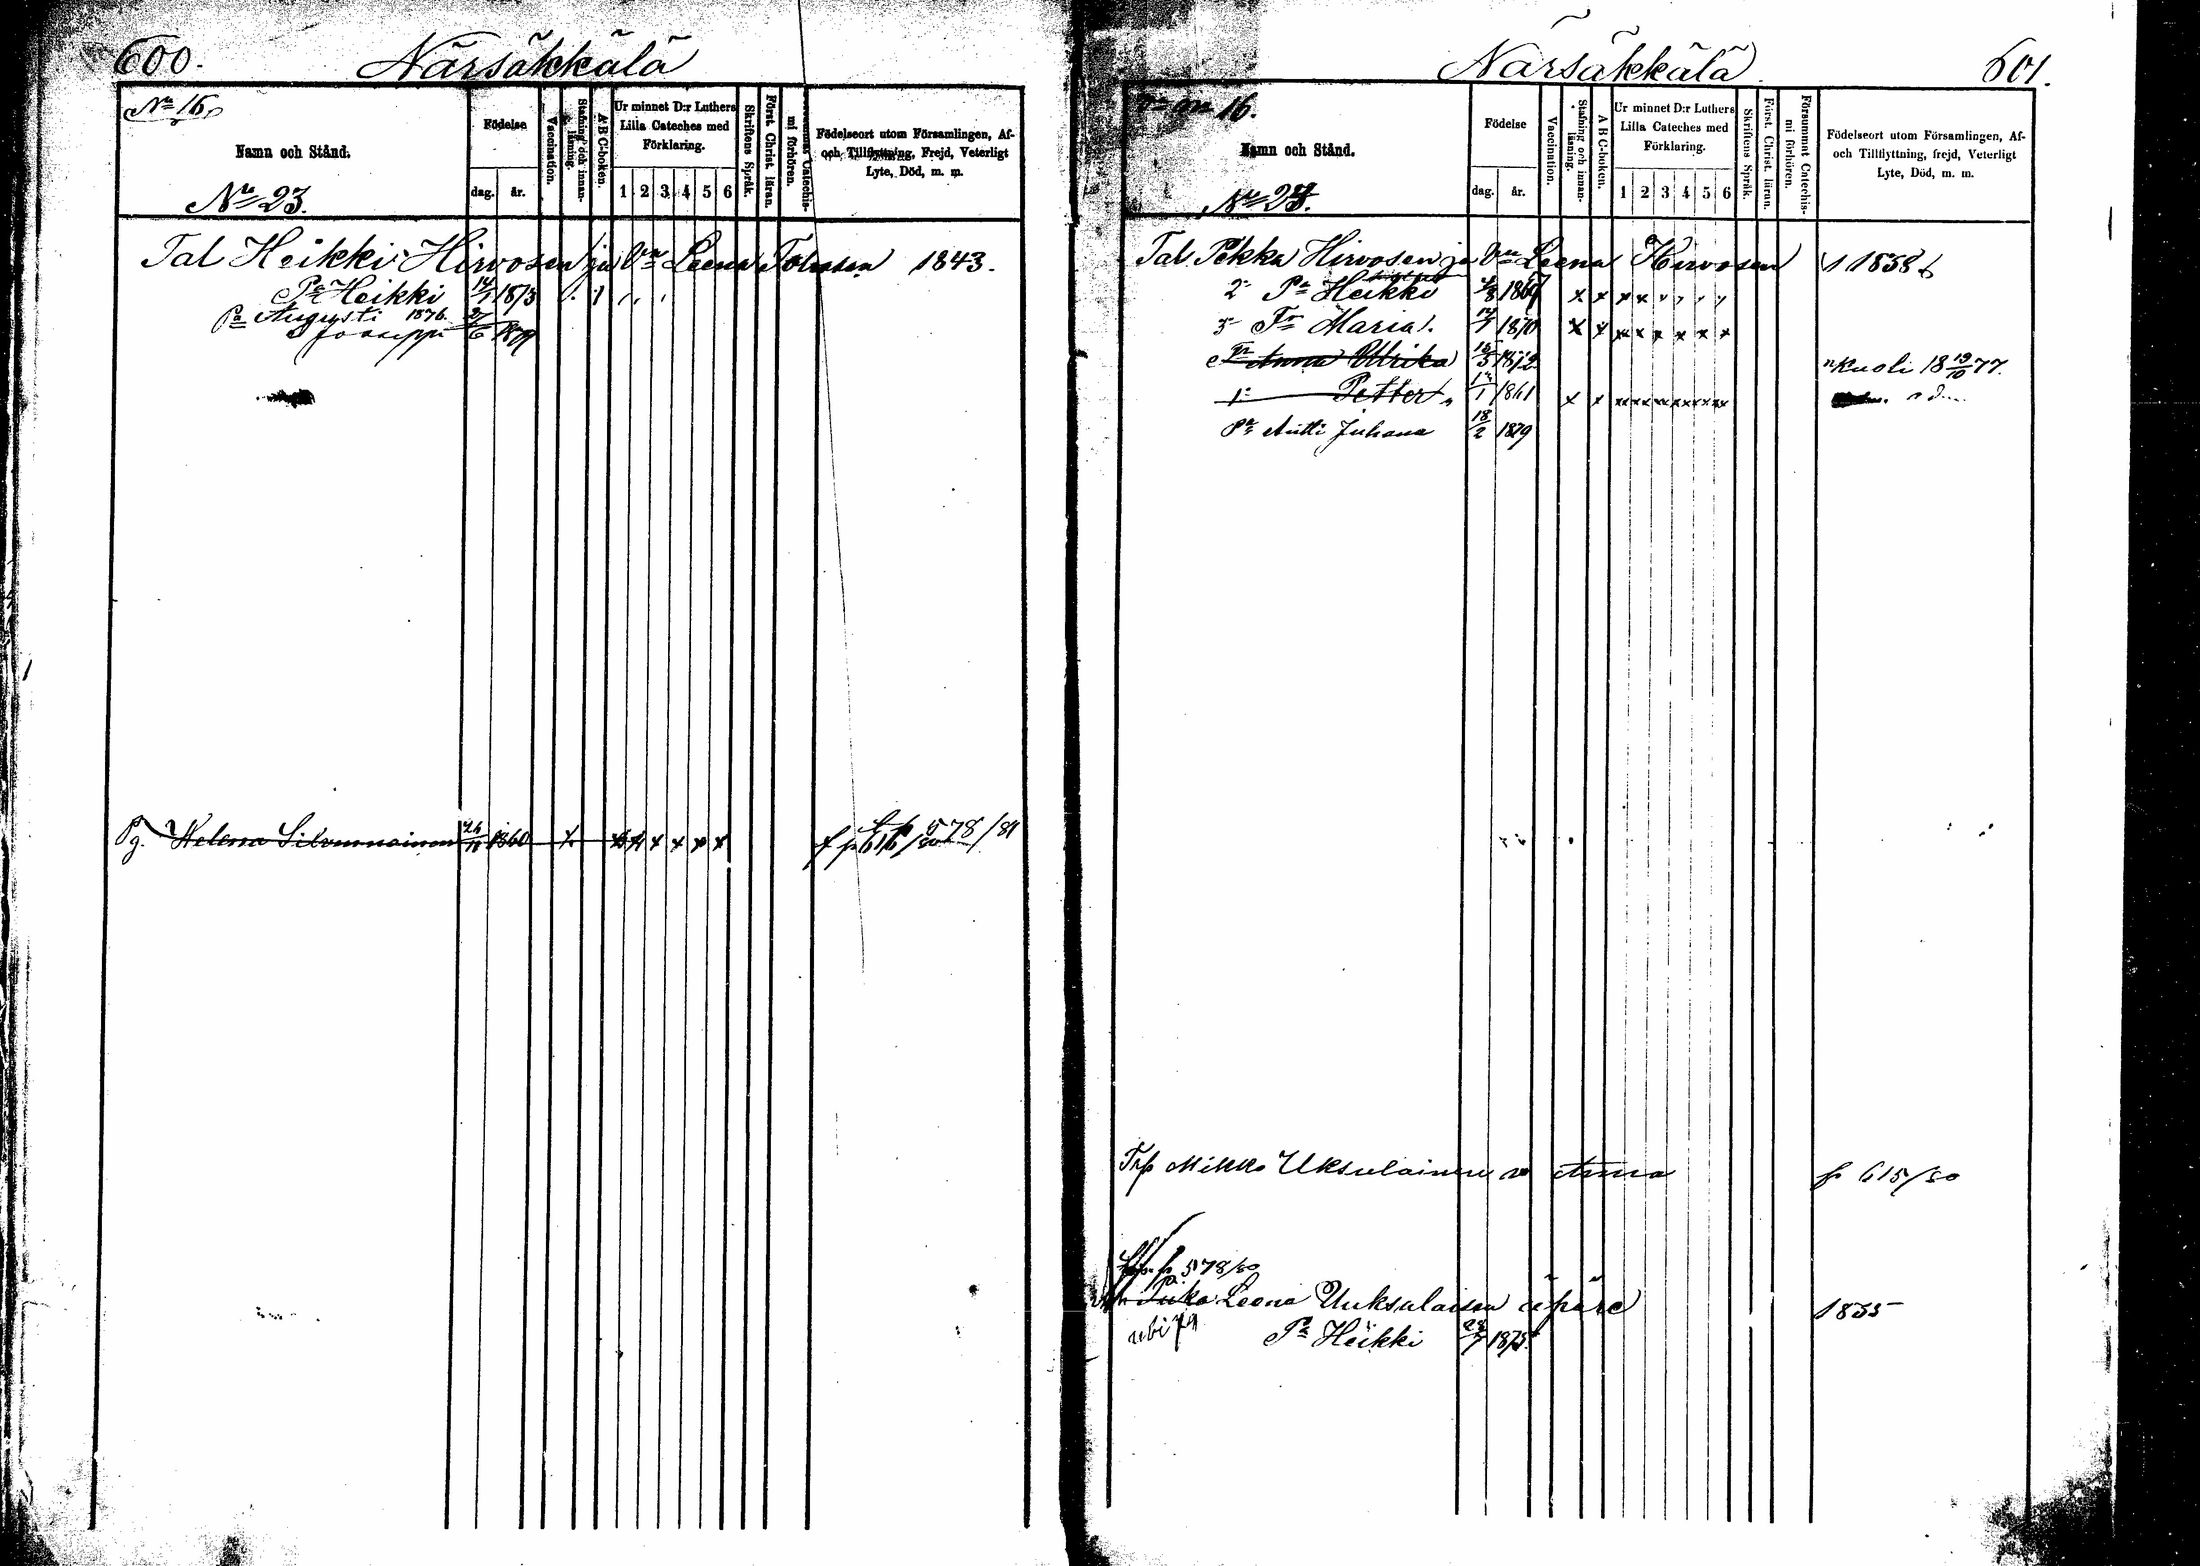 600. Närsäkkälä
No 16.
Namn och Stånd.
No 23.
Födelse
dag. år.
Vaccination.
Stafning och innan-
läsning.
A B C-boken.
Ur minnet D:r Luthers
Lilla Cateches med
Förklaring.
1 2 3 4 5 6
Skriftens Språk.
Först. Christ. läran.
mi förhören.
Födelseort utom Församlingen, Af-
och Tillflyttning, Frejd, Veterligt
Lyte, Död, m. m.
Tal Heikki Hirvosen ja Vm Leena 1843.
Pa Heikki 14/1 1873
Pa Augusti 1876.
Joseppi 1879
Pg. Helena Silvennainen 1860 x x x x x x 578/81
Närsäkkälä 601.
16.
Namn och Stånd.
No 24.
Födelse
dag. år.
Vaccination.
Stafning och innan-
läsning.
A B C-boken.
Ur minnet D:r Luthers
Lilla Cateches med
Förklaring.
1 2 3 4 5 6
Skriftens Språk.
Först. Christ. läran.
Försummat Catechis-
mi förhören.
Födelseort utom Församlingen, Af-
och Tillflyttning, frejd, Veterligt
Lyte, Död, m. m.
Tal. Pekka Hirvosen ja Vm Leena Hirvosen 1838
2 Pa Heikki x x x x
3 Tr Maria. 1870 x x x x x x x x
Tr Anna Ulrika 1872 kuoli 18 19/10 77.
1 Petter 1861 x x x x x x x x
Pa Antti Juhana 18/2 1879
Mikko Uksulainen Anna p 615/80
p 578/80
Leena Uuksulaisen äpäre 1835
ubi
Pa Heikki 1875